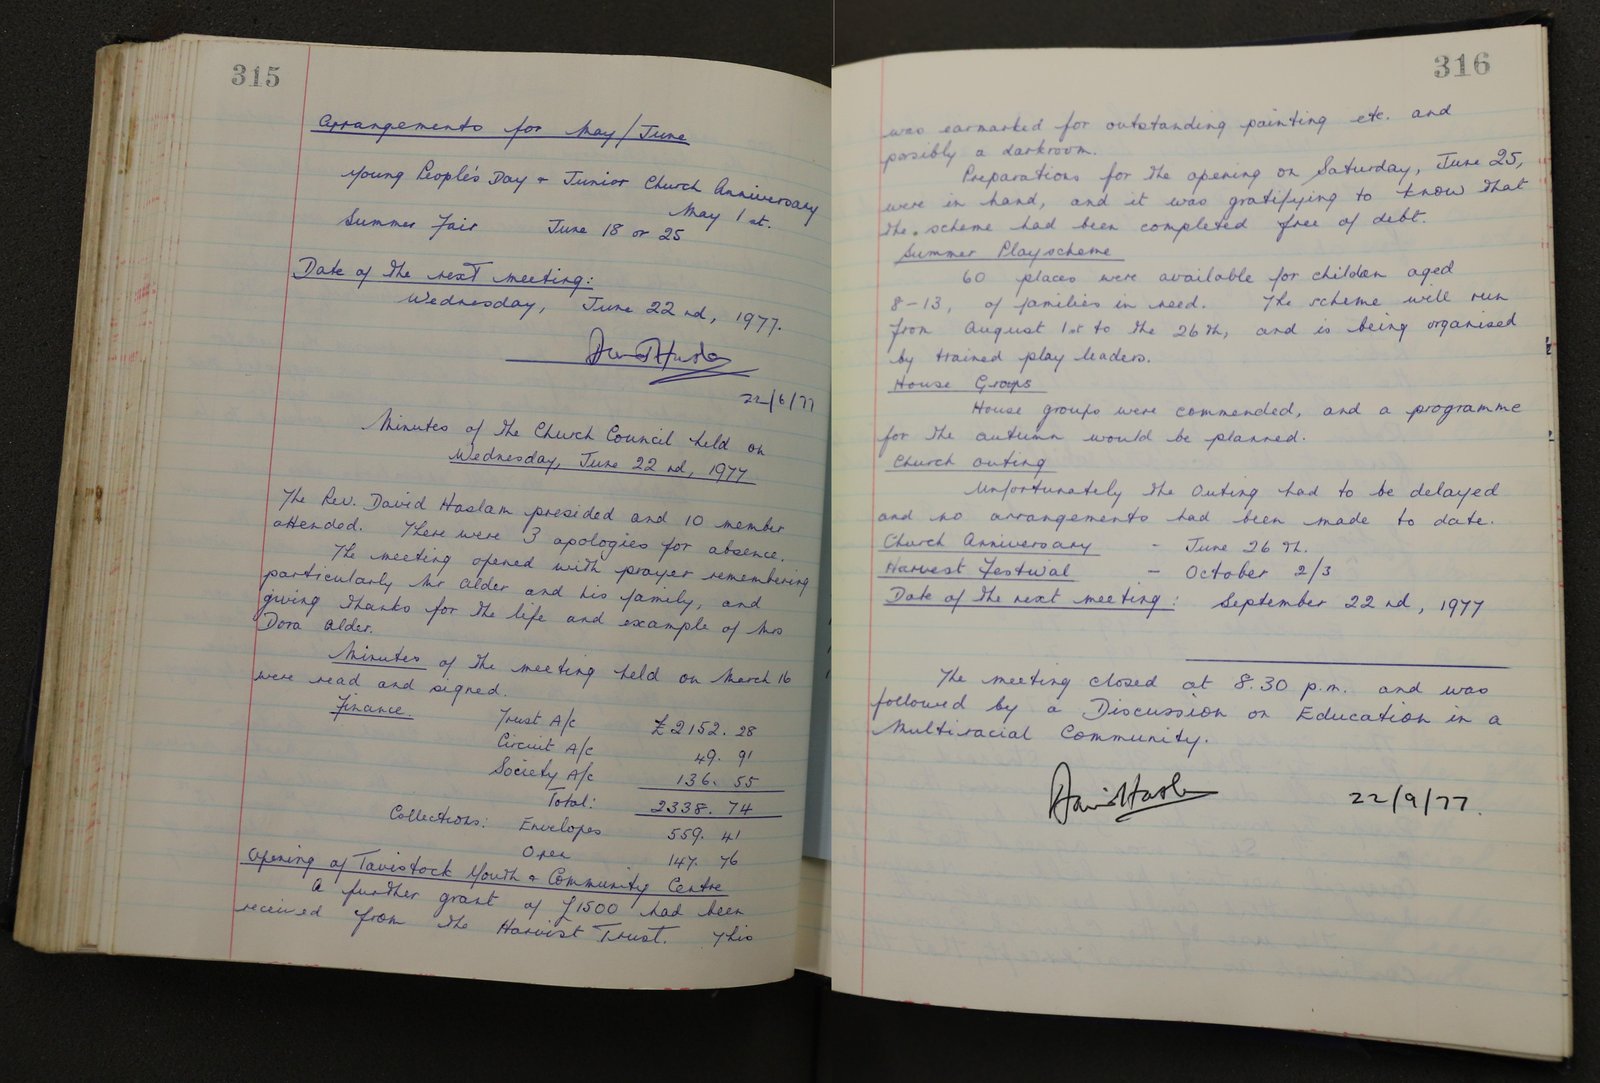 315
Arrangements for May/June
Young People's Day & Junior Church Anniversary
May 1st.
Summer Fair June 18 or 25
Date of the next meeting:
Wednesday, June 22nd, 1977.
22/6/77
Minutes of the Church Council held on
Wednesday, June 22nd, 1977
The Rev. David Haslam presided and 10 member
attended. There were 3 apologies for absence.
The meeting opened with prayer remembering
particularly Mr Alder and his family, and
giving thanks for the life and example of Mrs
Dora Alder.
Minutes of the meeting held on March 16
were read and signed.
Finance. Trust A/c £2152. 28
Circuit A/c 49. 91
Society A/c 136. 55
Total: 2338. 74
Collections: Envelopes 559. 41
Open 147. 76
Opening of Tavistock Youth & Community Centre
A further grant of £1500 had been
received from the Harvist Trust. This
316
was earmarked for outstanding painting etc. and
possibly a darkroom.
Preparations for the opening on Saturday, June 25,
were in hand, and it was gratifying to know that
the scheme had been completed free of debt.
Summer Playscheme
60 places were available for children aged
8-13, of families in need. The scheme will run
from August 1st to the 26th, and is being organised
by trained play leaders.
House Groups
House groups were commended, and a programme
for the autumn would be planned.
Church outing
Unfortunately the Outing had to be delayed
and no arrangements had been made to date.
Church Anniversary - June 26th.
Harvest Festival - October 2/3
Date of the next meeting: September 22nd, 1977
The meeting closed at 8.30 p.m. and was
followed by a Discussion on Education in a
Multiracial Community.
David Haslam 22/9/77.